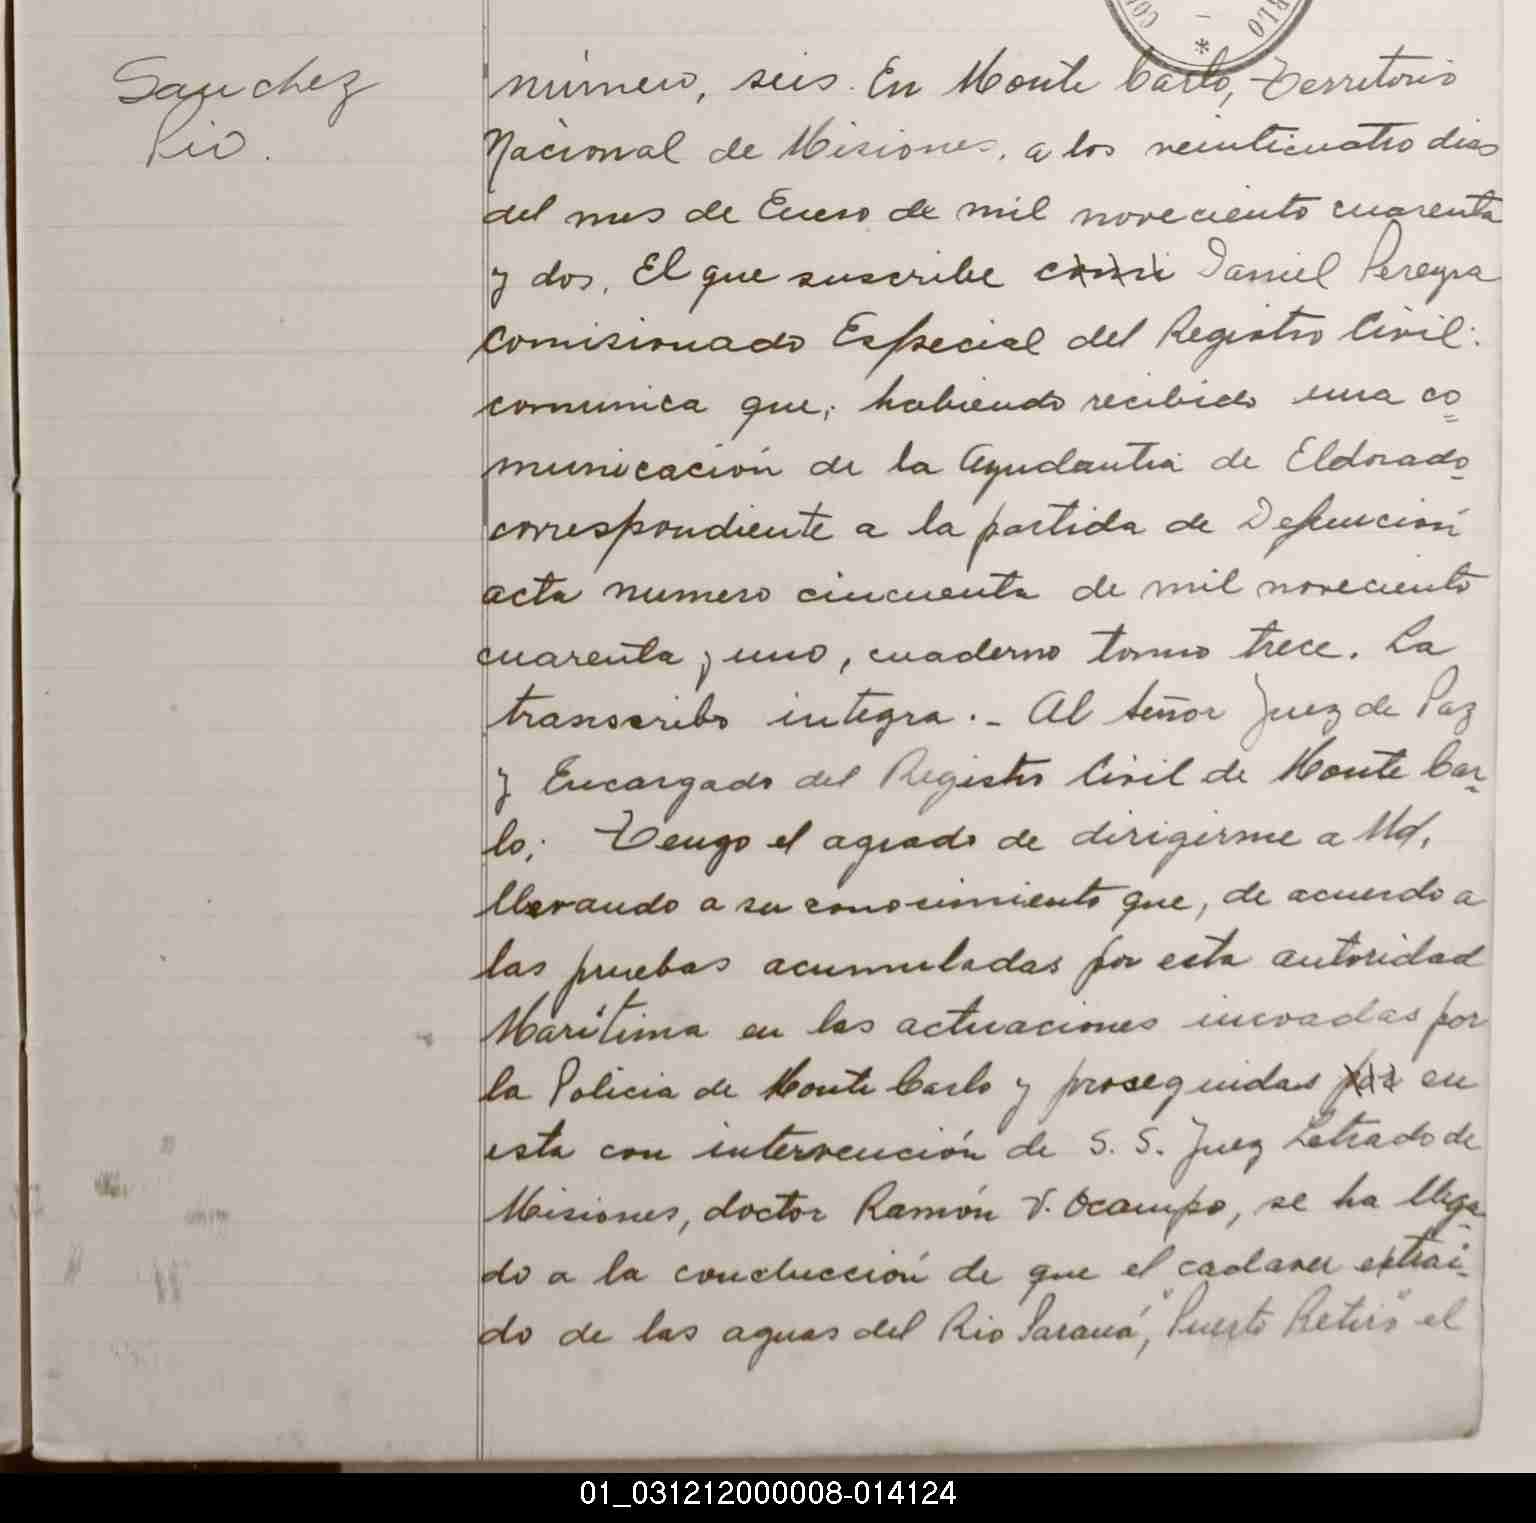 Sanchez
Pio.
número, seis. En Monte Carlo, Territorio
Nacional de Misiones, a los veinticuatro dias
del mes de Enero de mil noveciento cuarenta
y dos. El que suscribe Daniel Pereyra
Comisionado Especial del Registro Civil:
comunica que; habiendo recibido una co=
municación de la Ayudantia de Eldorado
correspondiente a la partida de Defunción
acta numero cincuenta de mil noveciento
cuarenta y uno, cuaderno tomo trece. La
transcribo integra.- Al Señor Juez de Paz
y Encargado del Registro Civil de Monte Car-
lo; Tengo el agrado de dirigirme a Ud,
llevando a su conocimiento que, de acuerdo a
las pruebas acumuladas por esta autoridad
Marítima en las actuaciones incoadas por
la Policia de Monte Carlo y proseguidas por en
esta con intervención de S. S. Juez Letrado de
Misiones, doctor Ramón V. Ocampo, se ha llega-
do a la conducción de que el cadaver extrai-
do de las aguas del Rio Paraná, "Puerto Retiro" el
01_031212000008-014124